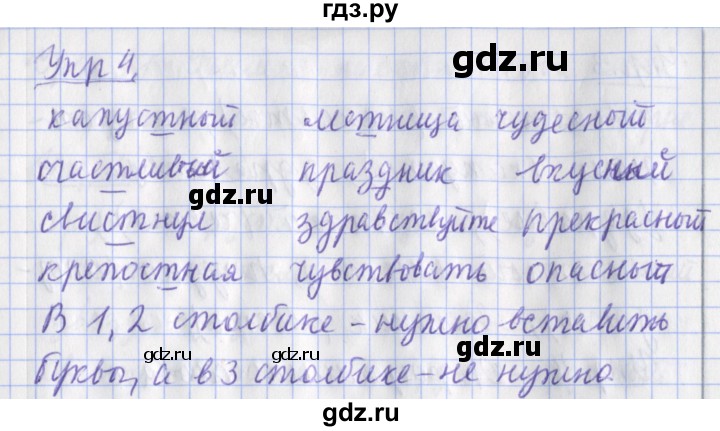 гдз.ру
gdz.ru
Упр 4.
gdz.ru
капустный лестница чудесный
счастливый праздник вкусный
gdz.ru
gdz.ru
свистнул здравствуйте прекрасный
крепостная чувствовать опасный
В 1, 2 столбике - нужно вставить
gdz.ru
gdz.ru
буквы, а в 3 столбике - не нужно.
gdz.ru